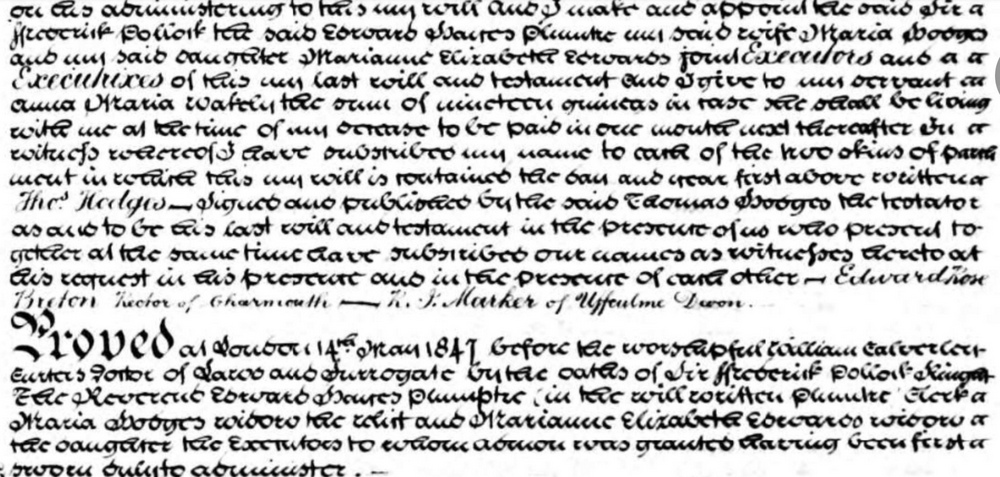 on his administering to this my will And I make and appoint the said Sir a
Frederick Pollock the said Edward Hawkes Plumtre my said wife Maria Hodges
and my said daughter Marianne Elizabeth Edwards joint Executors and a a
Executrixes of this my last will and testament And I give to my servant a
Anna Maria Wakely the sum of nineteen guineas in case she shall be living
with me at the time of my decease to be paid in one month next thereafter In a
witness whereof I have subscribed my name to each of the two skins of parch
ment in which this my will is contained the day and year first above written a
Thos. Hodges — Signed and published by the said Thomas Hodges the testator
as and to be his last will and testament in the presence of us who present to
gether at the same time have subscribed our names as witnesses hereto at
his request in his presence and in the presence of each other — Edward Rose
Breton Rector of Charmouth — R. J. Marker of Uffculme Devon.
Proved at London 14th May 1847 before the worshipful William Calverley
Curteis Doctor of Laws and Surrogate by the oaths of Sir Frederick Pollock Knight
The Reverend Edward Hawkes Plumptre (in the will written Plumtre Clerk a
Maria Hodges widow the relict and Marianne Elizabeth Edwards widow a
the daughter the Executors to whom admon was granted having been first a
sworn duly to administer. —